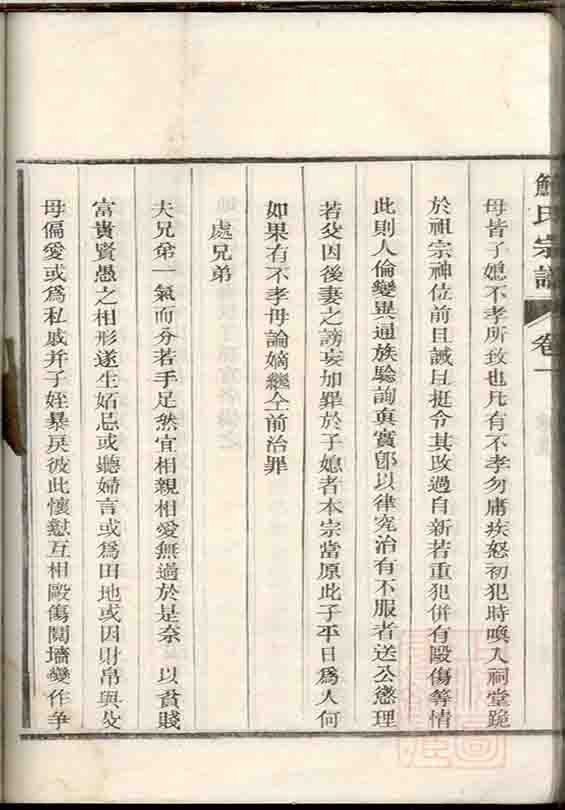 鮑氏宗譜 卷一
母皆子媳不孝所致也凡有不孝勿庸疾怒初犯時喚入祠堂跪
於祖宗神位前且誡且挺令其改過自新若重犯併有毆傷等情
此則人倫變異通族驗詢真實卽以律究治有不服者送公懲理
若父因後妻之謗妄加罪於子媳者本宗當原此子平日為人何
如果有不孝母論嫡繼仝前治罪
處兄弟
夫兄弟一氣而分若手足然宜相親相愛無過於是奈 以貧賤
富貴賢愚之相形遂生妬忌或聽婦言或爲田地或因財帛與父
母偏愛或爲私戚并子姪暴戾彼此懷懟互相毆傷鬩墻變作爭